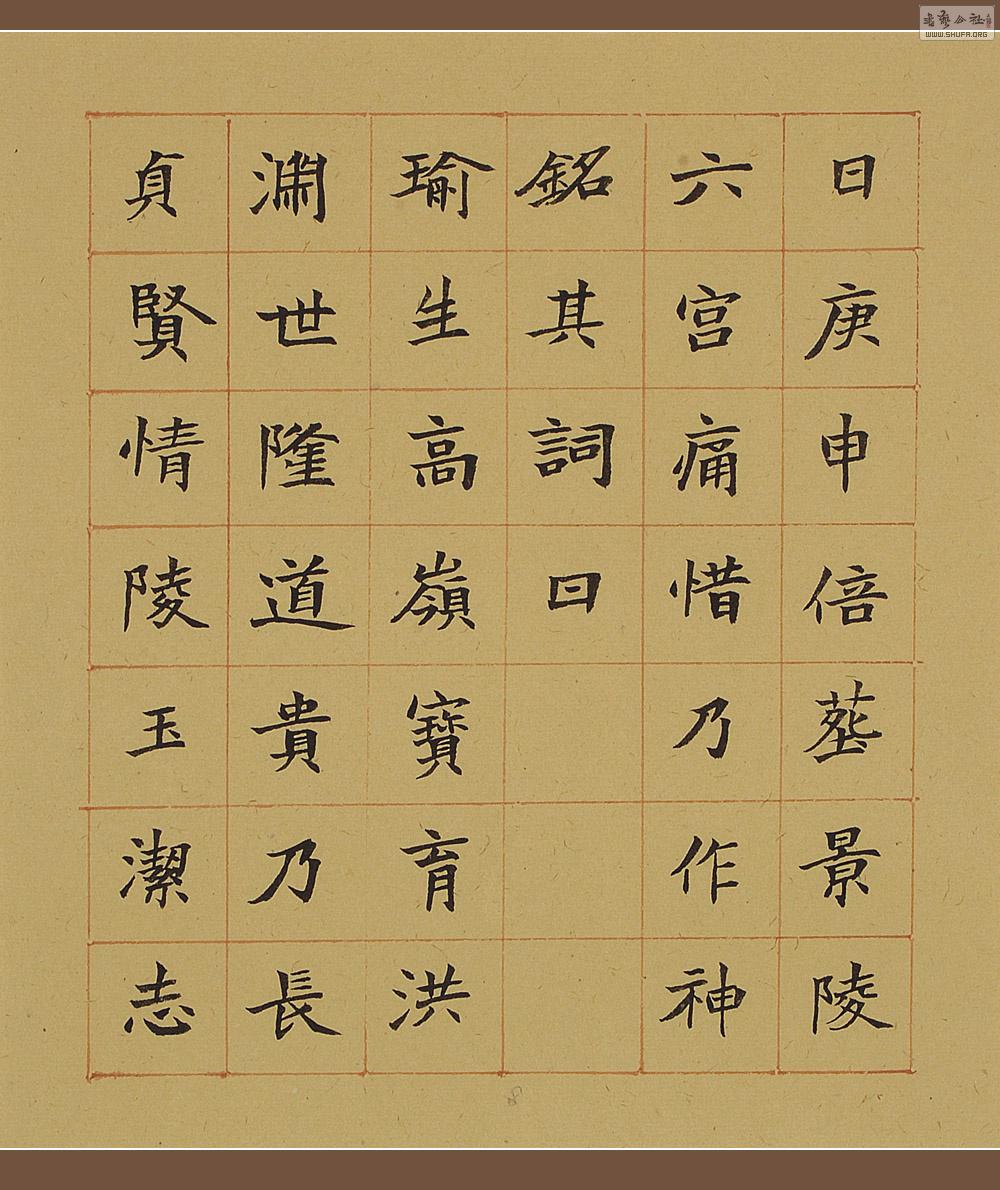 日庚申倍葬景陵
六宫痛惜乃作神
銘其詞曰
瑜生高嶺寶育洪
淵世隆道貴乃長
貞賢情陵玉潔志
WWW.SHUFA.ORG